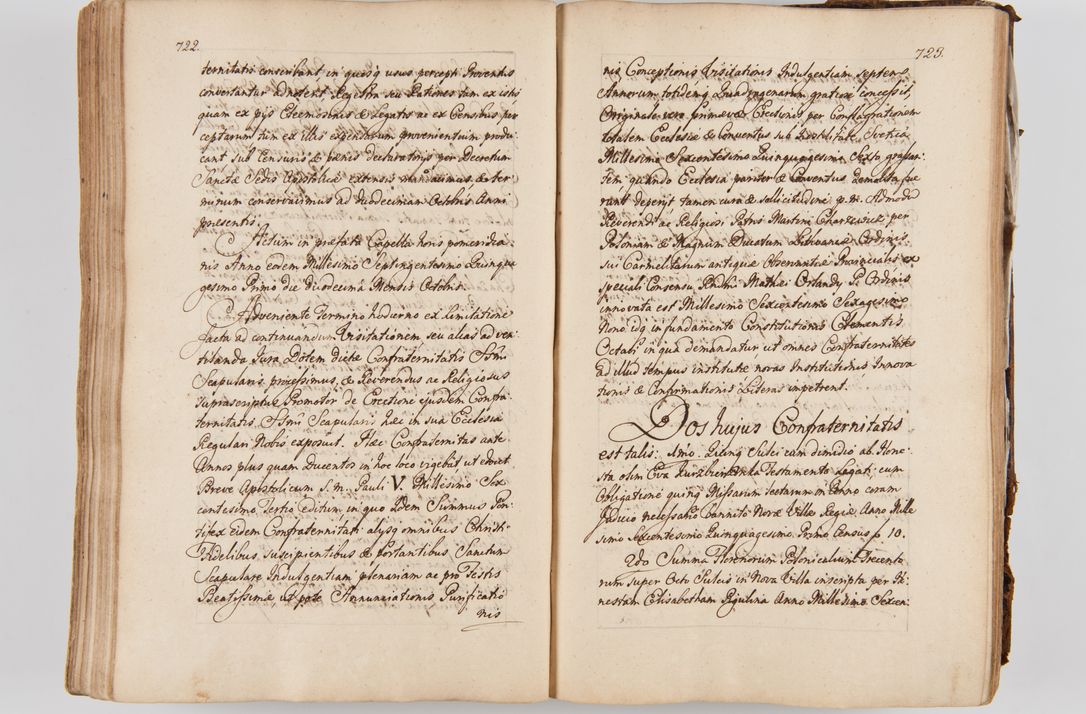 722.
ternitatis conscribant in quosq usus percepti Proventus
convertantur adnotent Regestra seu Rationes tam ex istis
quam ex pijs Eleemosinis & Legatis ac ex Censibus per
ceptarum tum ex illis expensarum provenientium produ
cant sub Censuris & pœnis declaratoriis per Decretum
Sanctæ Sedis Apostolicæ extensis mandamus & ter
minum conservavimus ad duodecimam Octobris Anni
præsentis.
Actum in præfata Capella horis pomeridia
nis Anno eodem Millesimo Septingentesimo Quinqua
gesimo Primo die duodecima Mensis Octobris.
Adveniente Termino hodierno ex limitatione
facta ad continuandum Visitationem seu alias ad ven
tilanda Jura Dotem dictæ Confraternitatis Ssmi
Scapularis processimus, & Reverendus ac Religiosus
suprascriptus Promotor de Erectione ejusdem Confra
ternitatis Ssmi Scapularis hæc in sua Ecclesia
Regulari Nobis exposuit. Hæc Confraternitas ante
Annos plus quam Ducentos in hoc loco vigebat ut edocet
Breve Apostolicum S. m. Pauli V. Millesimo Sex
centesimo Tertio editum in quo Idem Summus Pon
tifex eidem Confraternitati alysq omnibus Christi
Fidelibus suscipientibus & portantibus Sanctum
Scapulare Indulgentiam plenariam ac pro Festis
Beatissimæ ut pote Annunciationis Purificatio
nis
723.
nis Conceptionis Visitationis Indulgentiam septem
Annorum totidemq Quadragenarum gratiose concessit,
Originale vero primævæ Erectionis per Conflagrationem
totalem Ecclesiæ & Conventus sub Hostilitate Svetica
Millesimo Sexcentesimo Quinquagesimo Sexto grassan
tem quando Ecclesia pariter & Conventus demolita fue
runt deperijt tamen cura & sollicitudine p. m. Admodu
Reverendi ac Religiosi Patris Martini Charzewicz per
Poloniam & Magnum Ducatum Lithuaniæ Ordinis
sui Carmelitarum antiquæ Observantiæ Provincialis ex
speciali Consensu Rndmi Mathæi Orlandy Pr Ordinis
innovata est Millesimo Sexcentesimo Sexagesimo
Nono idq in fundamento Constitutionis Clementis
Octavi in qua demandatur ut omnes Confraternitates
ad illud tempus institutæ novas Institutionis Innova
tionis & Confirmationis Literas impetrent.
Dos hujus Confraternitatis
est talis. Imo. Quinq Sulci cum dimidio ab Hone
sta olim Eva Testamento Legati cum
Obligatione quinq Missarum lectarum in Anno coram
Judicio necessario bannito Novæ Villæ Regiæ Anno Mille
simo Sexcentesimo Quinquagesimo Primo Census f 10.
2do Summa Florenorum Polonicalium Trecento
rum super Octo Sulcis in Nova Villa inscripta per Ho
nestam Elisabetham Anno Millesimo Sexcen